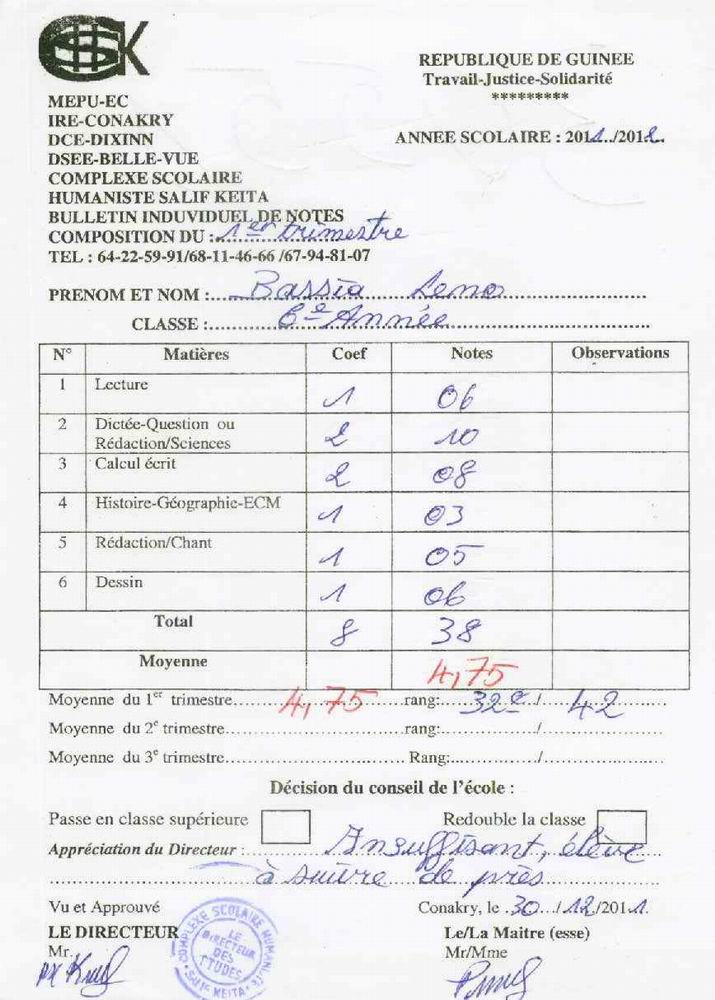 REPUBLIQUE DE GUINEE
Travail-Justice-Solidarité
*********
MEPU-EC
IRE-CONAKRY
DCE-DIXINN
DSEE-BELLE-VUE
COMPLEXE SCOLAIRE
HUMANISTE SALIF KEITA
BULLETIN INDUVIDUEL DE NOTES
COMPOSITION DU : 1er trimestre
TEL : 64-22-59-91/68-11-46-66 /67-94-81-07
ANNEE SCOLAIRE : 2011../2012.
PRENOM ET NOM : Bassia Leno
CLASSE : 6e Année
N° Matières Coef Notes Observations
1 Lecture 1 06
2 Dictée-Question ou Rédaction/Sciences 2 10
3 Calcul écrit 2 08
4 Histoire-Géographie-ECM 1 03
5 Rédaction/Chant 1 05
6 Dessin 1 06
Total 8 38
Moyenne 4,75
Moyenne du 1er trimestre 4,75 rang: 32e / 42
Moyenne du 2e trimestre rang: /
Moyenne du 3e trimestre Rang: /
Décision du conseil de l'école :
Passe en classe supérieure Redouble la classe
Appréciation du Directeur : Insuffisant, élève
à suivre de près
Vu et Approuvé Conakry, le 30 / 12 /2011.
LE DIRECTEUR Le/La Maitre (esse)
Mr. Mr/Mme
COMPLEXE SCOLAIRE
LE DIRECTEUR DES ETUDES
SALIF KEITA